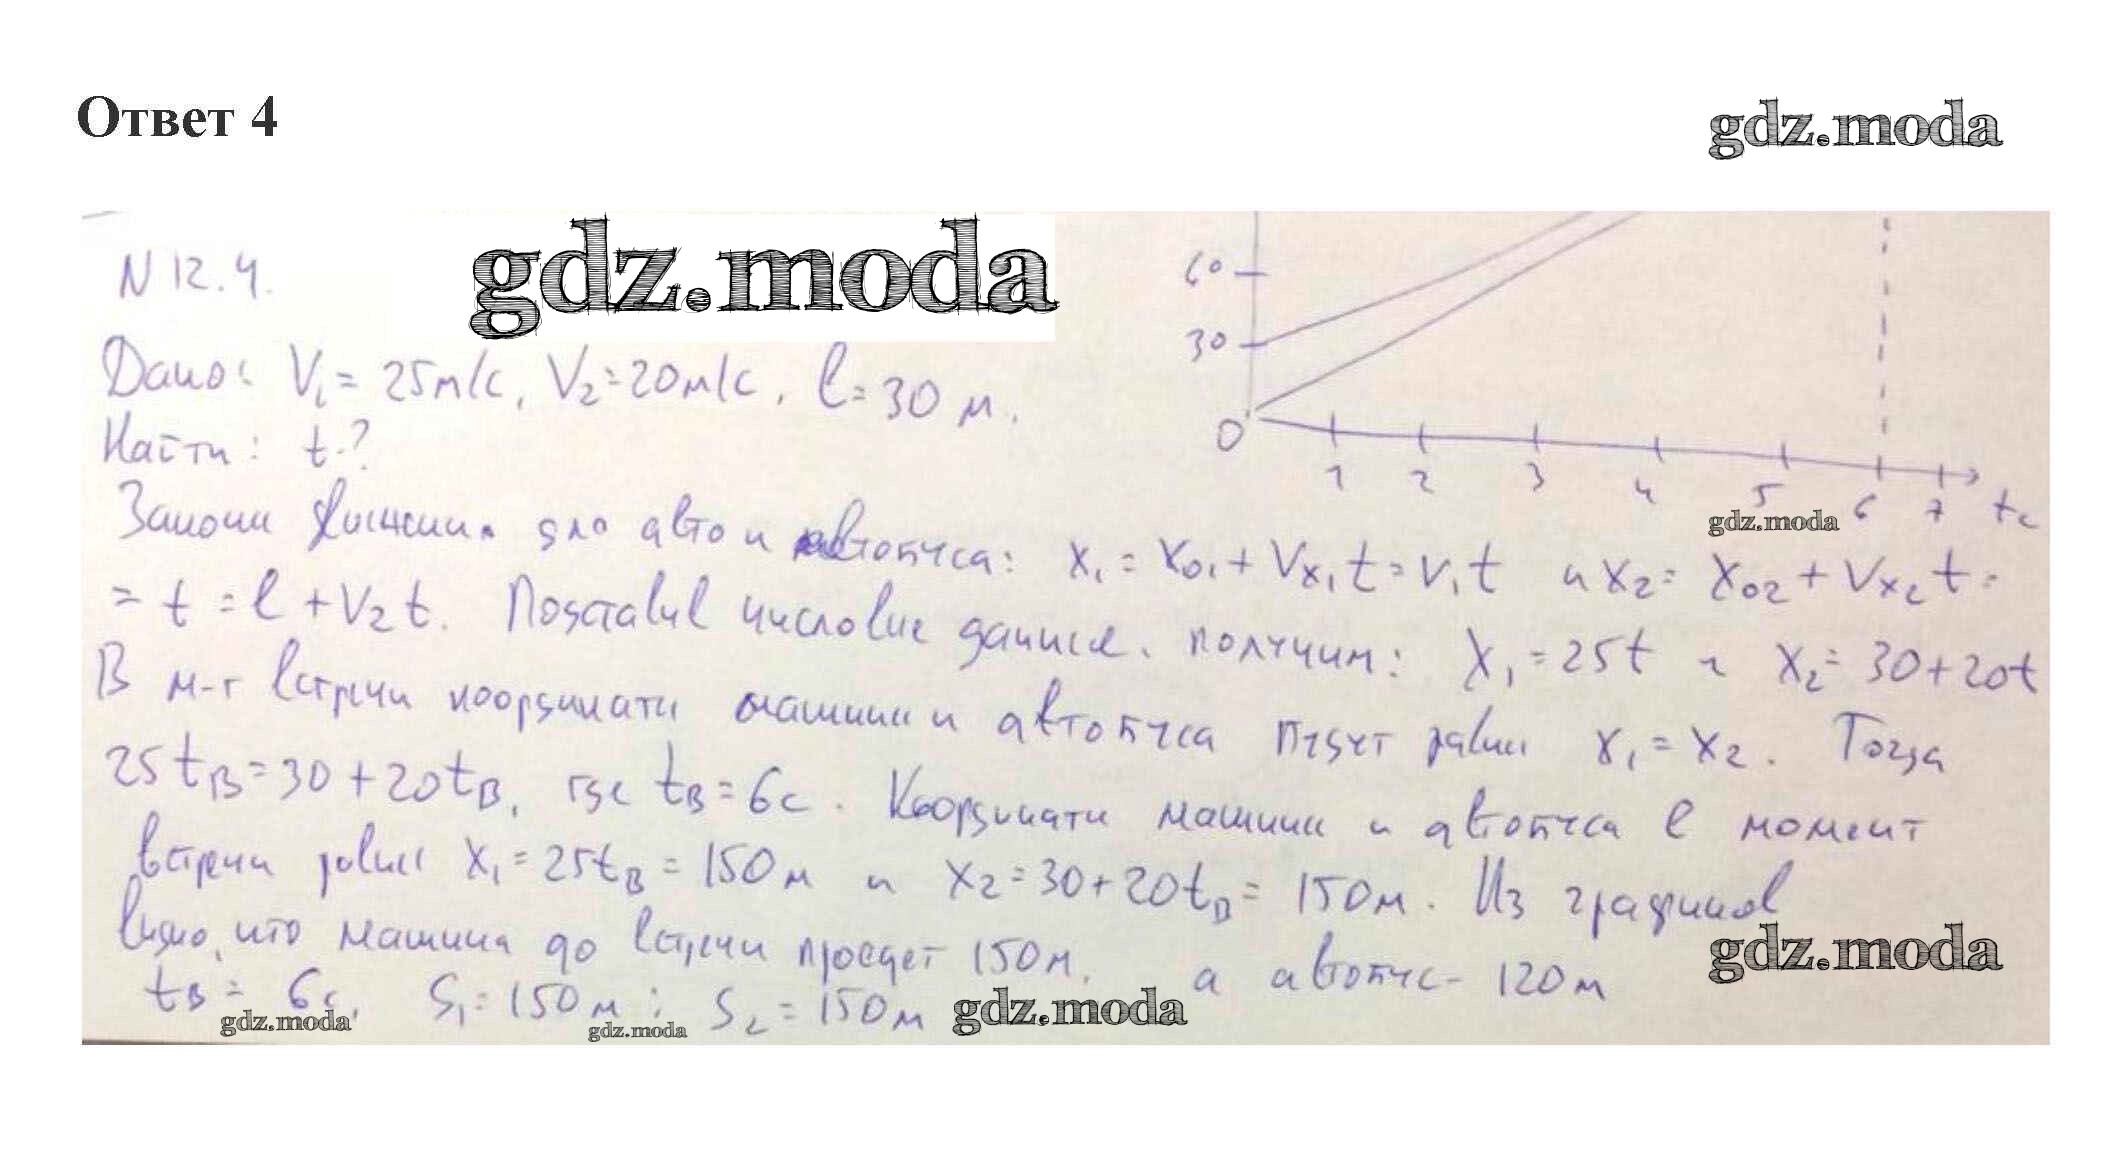 Ответ 4
gdz.moda
N 12.4.
gdz.moda
60
30
0
1 2 3 4 5 6 7 tc
gdz.moda
Дано: V₁ = 25м/с, V₂ = 20м/с, l = 30 м.
Найти: t-?
Законы движения для авто и автобуса: x₁ = x₀₁ + Vx₁t = v₁t и x₂ = x₀₂ + Vx₂t =
= t = l + v₂t. Подставив числовые данные, получим: x₁ = 25t и x₂ = 30 + 20t
В м-т встречи координаты машины и автобуса будут равны x₁ = x₂. Тогда
25tв = 30 + 20tв, где tв = 6с. Координаты машины и автобуса в момент
встречи равны x₁ = 25tв = 150м и x₂ = 30 + 20tв = 150м. Из графиков
gdz.moda
видно, что машина до встречи проедет 150м, а автобус - 120м
tв = 6с, S₁ = 150м; S₂ = 150м
gdz.moda gdz.moda gdz.moda